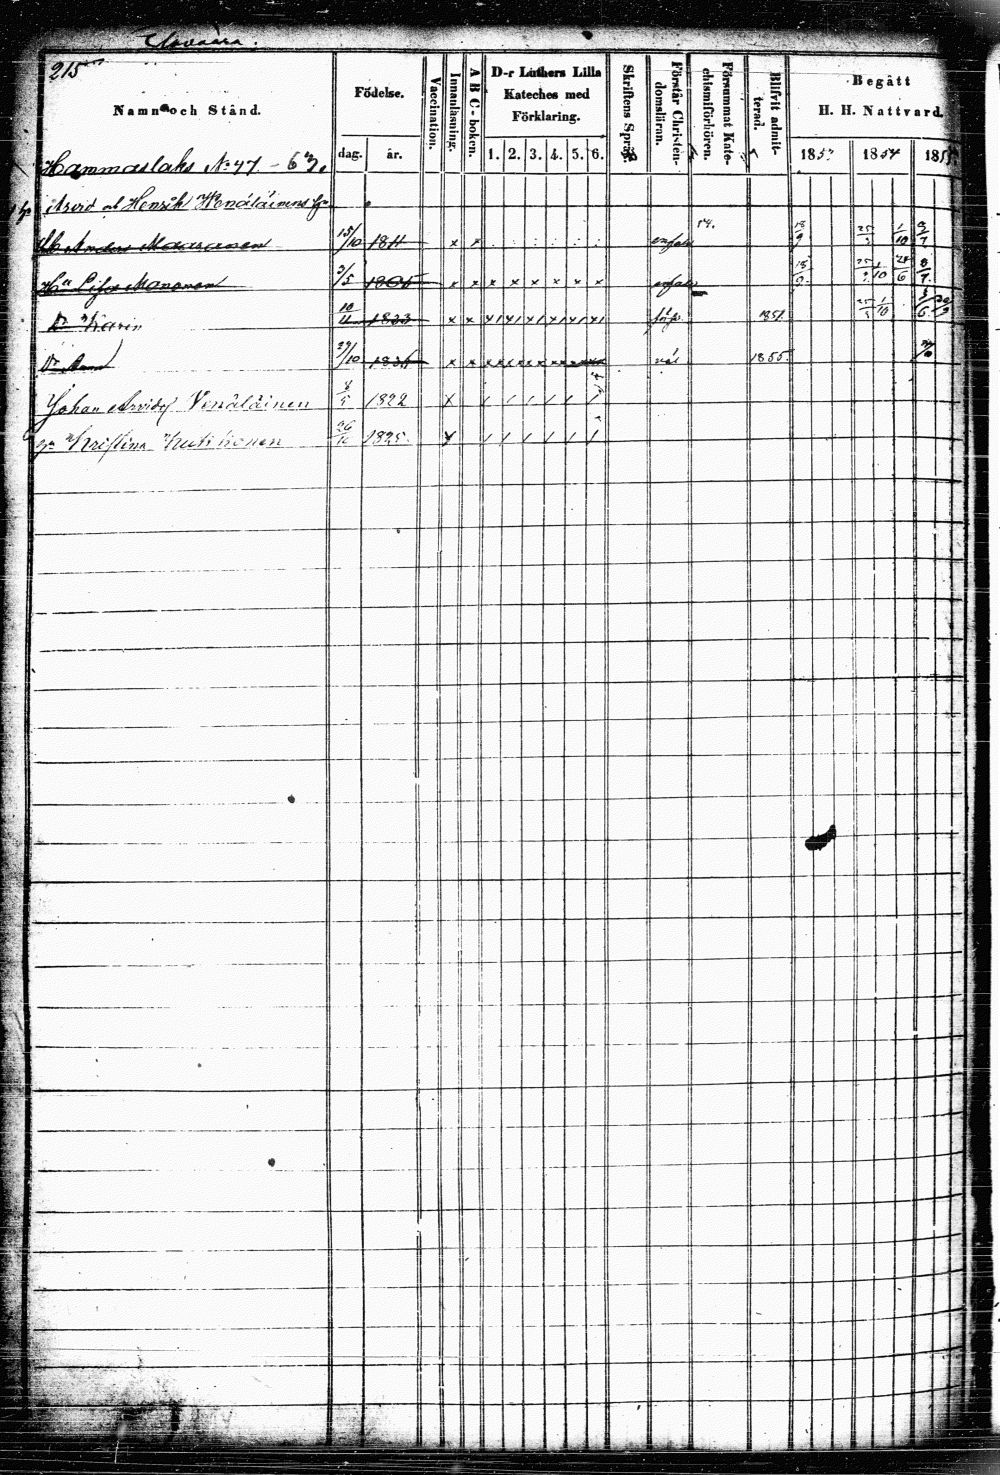 215
Namn och Stånd.
Födelse.
dag. år.
Vaccination.
Innanläsning.
A B C-boken.
D-r Luthers Lilla Kateches med Förklaring.
1. 2. 3. 4. 5. 6.
Skriftens Språk
Förstår Christendomsläran.
Försummat Katechismiförhören.
Blifvit admitterad.
Begått H. H. Nattvard.
1853 1854 1855
Hammaslaks No 47 - 63.
Arvid och Henrik Wenäläinens
Anders Makkaranen 15/10 1811 x x enfald 14. 18/9 1/10 8/7
Hu Lisa Manonen 3/5 1805 x x x x x x x x enfald 18/9 1/10 28/6 8/7
Dr Karin 10/11 1833 x x x x x x x x 1851 1/10
Dr Anna 27/10 1836 x x x x x x x x väl 1855.
Johan Arvidsj Venäläinen 8/5 1822 x / / / / /
Hu Kristina Kutihonen 26/11 1825. x / / / / / /